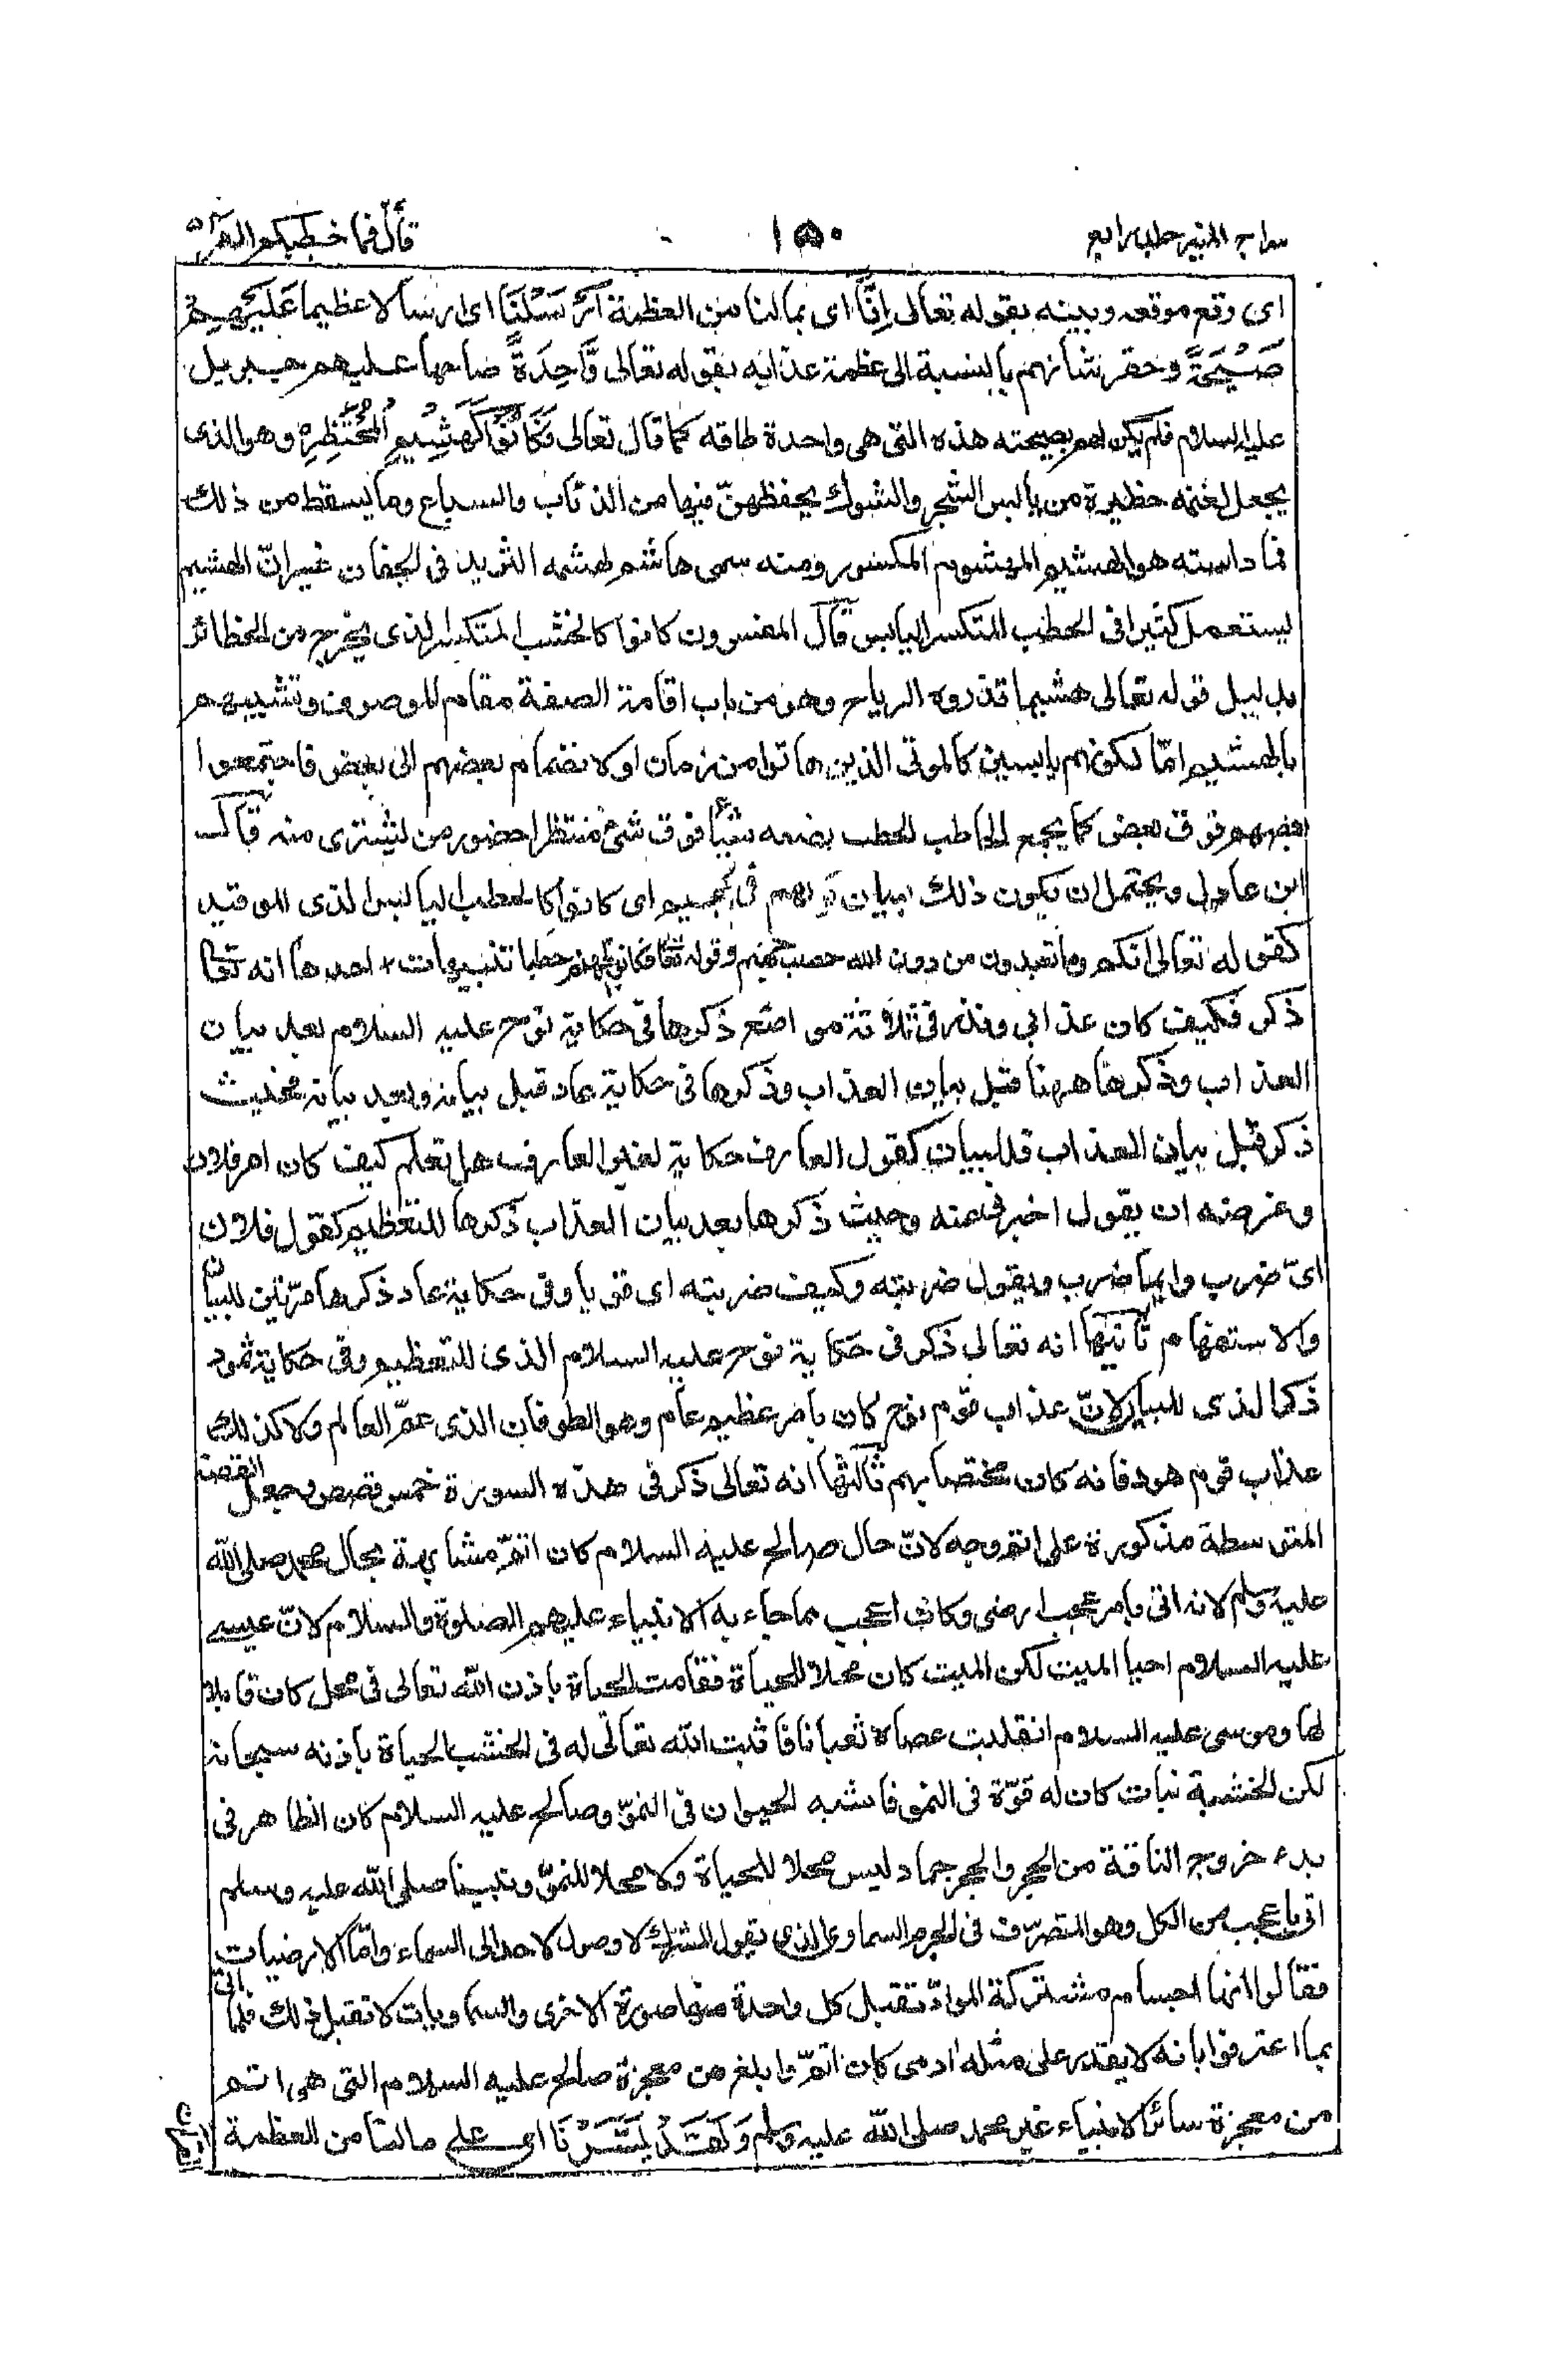 سراج المنير جلد رابع
١٥٠
قال فما خطبكم القمر ٥٤
اى وقع موقعه وبينه بقوله تعالى إِنَّا اى بما لنا من العظمة أَرْسَلْنَا اى ارسالا عظيما عَلَيْهِمْ
صَيْحَةً وحقر شأنهم بالنسبة الى عظمة عذابه بقوله تعالى وَّاحِدَةً صاحها عليهم جبريل
عليه السلام فلم يكن لهم بصيحته هذه التى هى واحدة طاقة كما قال تعالى فَكَانُوْا كَهَشِيْمِ الْمُحْتَظِرِ وهو الذى
يجعل لغنمه حظيرة من يابس الشجر والشوك يحفظهنّ فيها من الذئاب والسباع وما يسقط من ذلك
فما داسته هو الهشيم المهشوم المكسور ومنه سمى هاشم لهشمه الثريد فى الجفان غير انّ الهشيم
يستعمل كثيرا فى الحطب المتكسر اليابس قال المفسرون كانوا كالخشب المتكسر الذى يخرج من الحظائر
بدليل قوله تعالى هشيما تذروه الرياح وهو من باب اقامة الصفة مقام الموصوف وتشبيههم
بالهشيم امّا لكونهم يابسين كالموتى الذين ماتوا من زمان او لانضمام بعضهم الى بعض فاجتمعوا
بعضهم فوق بعض كما يجمع الحاطب الحطب يضعه شيأ فوق شئ منتظرا حضور من يشترى منه قال
ابن عادل ويحتمل ان يكون ذلك لبيان كونهم فى الجحيم اى كانوا كالحطب اليابس الذى للوقيد
كقوله تعالى انكم وما تعبدون من دون الله حصب جهنم وقوله تعا فكانوا لجهنم حطبا تنبيهات + احدها انه تعا
ذكر فكيف كان عذابى ونذر فى ثلاثة مواضع ذكرها فى حكاية نوح عليه السلام بعد بيان
العذاب وذكرها ههنا قبل بيان العذاب وذكرها فى حكاية عاد قبل بيانه وبعد بيانه فحيث
ذكر قبل بيان العذاب فللبيان كقول العارف حكاية لغير العارف هل تعلم كيف كان امر فلان
وغرضه ان يقول اخبرنى عنه وحيث ذكرها بعد بيان العذاب ذكرها للتعظيم كقول فلان
اىّ ضرب وايما ضرب ويقول ضربته وكيف ضربته اى قويا وفى حكاية عاد ذكرها مرّتين للبيان
والاستفهام ثانيها انه تعالى ذكر فى حكاية نوح عليه السلام الذى للتعظيم وفى حكاية ثمود
ذكر الذى للبيان لانّ عذاب قوم نوح كان بامر عظيم عام وهو الطوفان الذى عمّ العالم ولا كذلك
عذاب قوم هود فانه كان مختصا بهم ثالثها انه تعالى ذكر فى هذه السورة خمس قصص وجعل القصة
المتوسطة مذكورة على اتم وجه لانّ حال صالح عليه السلام كان اتمّ مشابهة بحال محمد صلى الله
عليه وسلم لانه اتى بامر عجيب ارضى وكان اعجب مما جاء به الانبياء عليهم الصلوة والسلام لانّ عيسى
عليه السلام احيا الميت لكن الميت كان محلا للحياة فقامت الحياة باذن الله تعالى فى محل كان قابلا
لها وموسى عليه السلام انقلبت عصاه ثعبانا فاثبت الله تعالى له فى الخشب الحياة باذنه سبحانه
لكن الخشبة نبات كان له قوّة فى النمو فاشبه الحيوان فى النموّ وصالح عليه السلام كان الظاهر فى
يده خروج الناقة من الحجر والحجر جماد ليس محلا للحياة ولا محلا للنموّ ونبينا صلى الله عليه وسلم
اتى باعجب من الكل وهو التصرّف فى الجرم السماوى الذى يقول المشرك لا وصول لاحد الى السماء وامّا الارضيات
فقالوا انها اجسام مشتركة الموادّ تقبل كل واحدة منها صورة الاخرى والسماويات لا تقبل ذلك فلما اتى
بما اعترفوا بانه لا يقدر على مثله ادمى كان اتمّ وابلغ من معجزة صالح عليه السلام التى هى اتم
من معجزة سائر الانبياء غير محمد صلى الله عليه وسلم وَلَقَدْ يَسَّرْنَا اى على مالنا من العظمة
القرآن